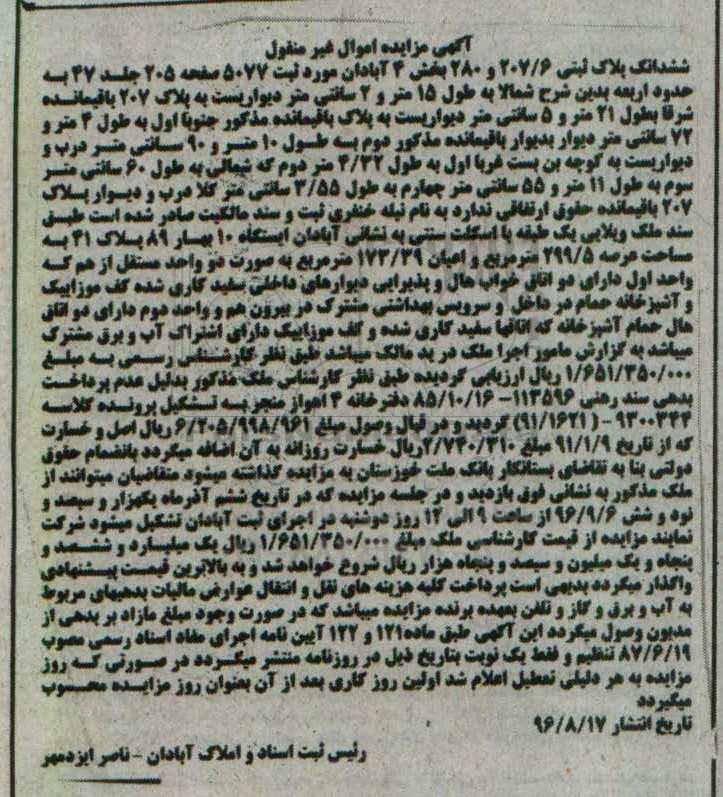 آگهی مزایده اموال غیر منقول
ششدانگ پلاک ثبتی ۲۰۷/۶ و ۲۸۰ بخش ۴ آبادان مورد ثبت ۵۰۷۷ صفحه ۲۰۵ جلد ۴۷ به
حدود اربعه بدین شرح شمالا به طول ۱۵ متر و ۲ سانتی متر دیواریست به پلاک ۲۰۷ باقیمانده
شرقا بطول ۲۱ متر و ۵ سانتی متر دیواریست به پلاک باقیمانده مذکور جنوبا اول به طول ۴ متر و
۷۲ سانتی متر دیوار بدیوار باقیمانده مذکور دوم به طول ۱۰ متر و ۹۰ سانتی متر درب و
دیواریست به کوچه بن بست غربا اول به طول ۴/۳۲ متر دوم که شمالی به طول ۶۰ سانتی متر
سوم به طول ۱۱ متر و ۵۵ سانتی متر چهارم به طول ۳/۵۵ سانتی متر کلا درب و دیوار پلاک
۲۰۷ باقیمانده حقوق ارتفاقی ندارد به نام نیله خنفری ثبت و سند مالکیت صادر شده است طبق
سند ملک ویلایی یک طبقه با اسکلت سنتی به نشانی آبادان ایستگاه ۱۰ بهار ۸۹ پلاک ۴۱ به
مساحت عرصه ۲۹۹/۵ مترمربع و اعیان ۱۷۳/۳۹ مترمربع به صورت دو واحد مستقل از هم که
واحد اول دارای دو اتاق خواب هال و پذیرایی دیوارهای داخلی سفید کاری شده کف موزاییک
و آشپزخانه حمام در داخل و سرویس بهداشتی مشترک در بیرون هم و واحد دوم دارای دو اتاق
هال حمام آشپزخانه که اتاقها سفید کاری شده و کف موزاییک دارای اشتراک آب و برق مشترک
میباشد به گزارش مامور اجرا ملک در ید مالک میباشد طبق نظر کارشناس رسمی به مبلغ
۱/۶۵۱/۳۵۰/۰۰۰ ریال ارزیابی گردیده طبق نظر کارشناس ملک مذکور بدلیل عدم پرداخت
بدهی سند رهنی ۱۱۳۵۹۶- ۸۵/۱۰/۱۶ دفترخانه ۴ اهواز منجر به تشکیل پرونده کلاسه
۹۳۰۰۳۴۴ - (۹۱/۱۶۲۱) گردید و در قبال وصول مبلغ ۶/۲۰۵/۹۹۸/۹۶۱ ریال اصل و خسارت
که از تاریخ ۹۱/۱/۹ مبلغ ۲/۷۴۰/۳۱۰ ریال خسارت روزانه به آن اضافه میگردد بانضمام حقوق
دولتی بنا به تقاضای بستانکار بانک ملت خوزستان به مزایده گذاشته میشود متقاضیان میتوانند از
ملک مذکور به نشانی فوق بازدید و در جلسه مزایده که در تاریخ ششم آذرماه یکهزار و سیصد و
نود و شش ۹۶/۹/۶ از ساعت ۹ الی ۱۲ روز دوشنبه در اجرای ثبت آبادان تشکیل میشود شرکت
نمایند مزایده از قیمت کارشناسی ملک مبلغ ۱/۶۵۱/۳۵۰/۰۰۰ ریال یک میلیارد و ششصد و
پنجاه و یک میلیون و سیصد و پنجاه هزار ریال شروع خواهد شد و به بالاترین قیمت پیشنهادی
واگذار میگردد بدیهی است پرداخت کلیه هزینه های نقل و انتقال عوارض مالیات بدهیهای مربوط
به آب و برق و گاز و تلفن بعهده برنده مزایده میباشد که در صورت وجود مبلغ مازاد بر بدهی از
مدیون وصول میگردد این آگهی طبق ماده۱۲۱ و ۱۲۲ آیین نامه اجرای مفاد اسناد رسمی مصوب
۸۷/۶/۱۹ تنظیم و فقط یک نوبت بتاریخ ذیل در روزنامه منتشر میگردد در صورتی که روز
مزایده به هر دلیلی تعطیل اعلام شد اولین روز کاری بعد از آن بعنوان روز مزایده محسوب
میگیردد
تاریخ انتشار ۹۶/۸/۱۷
رئیس ثبت اسناد و املاک آبادان - ناصر ایزدمهر